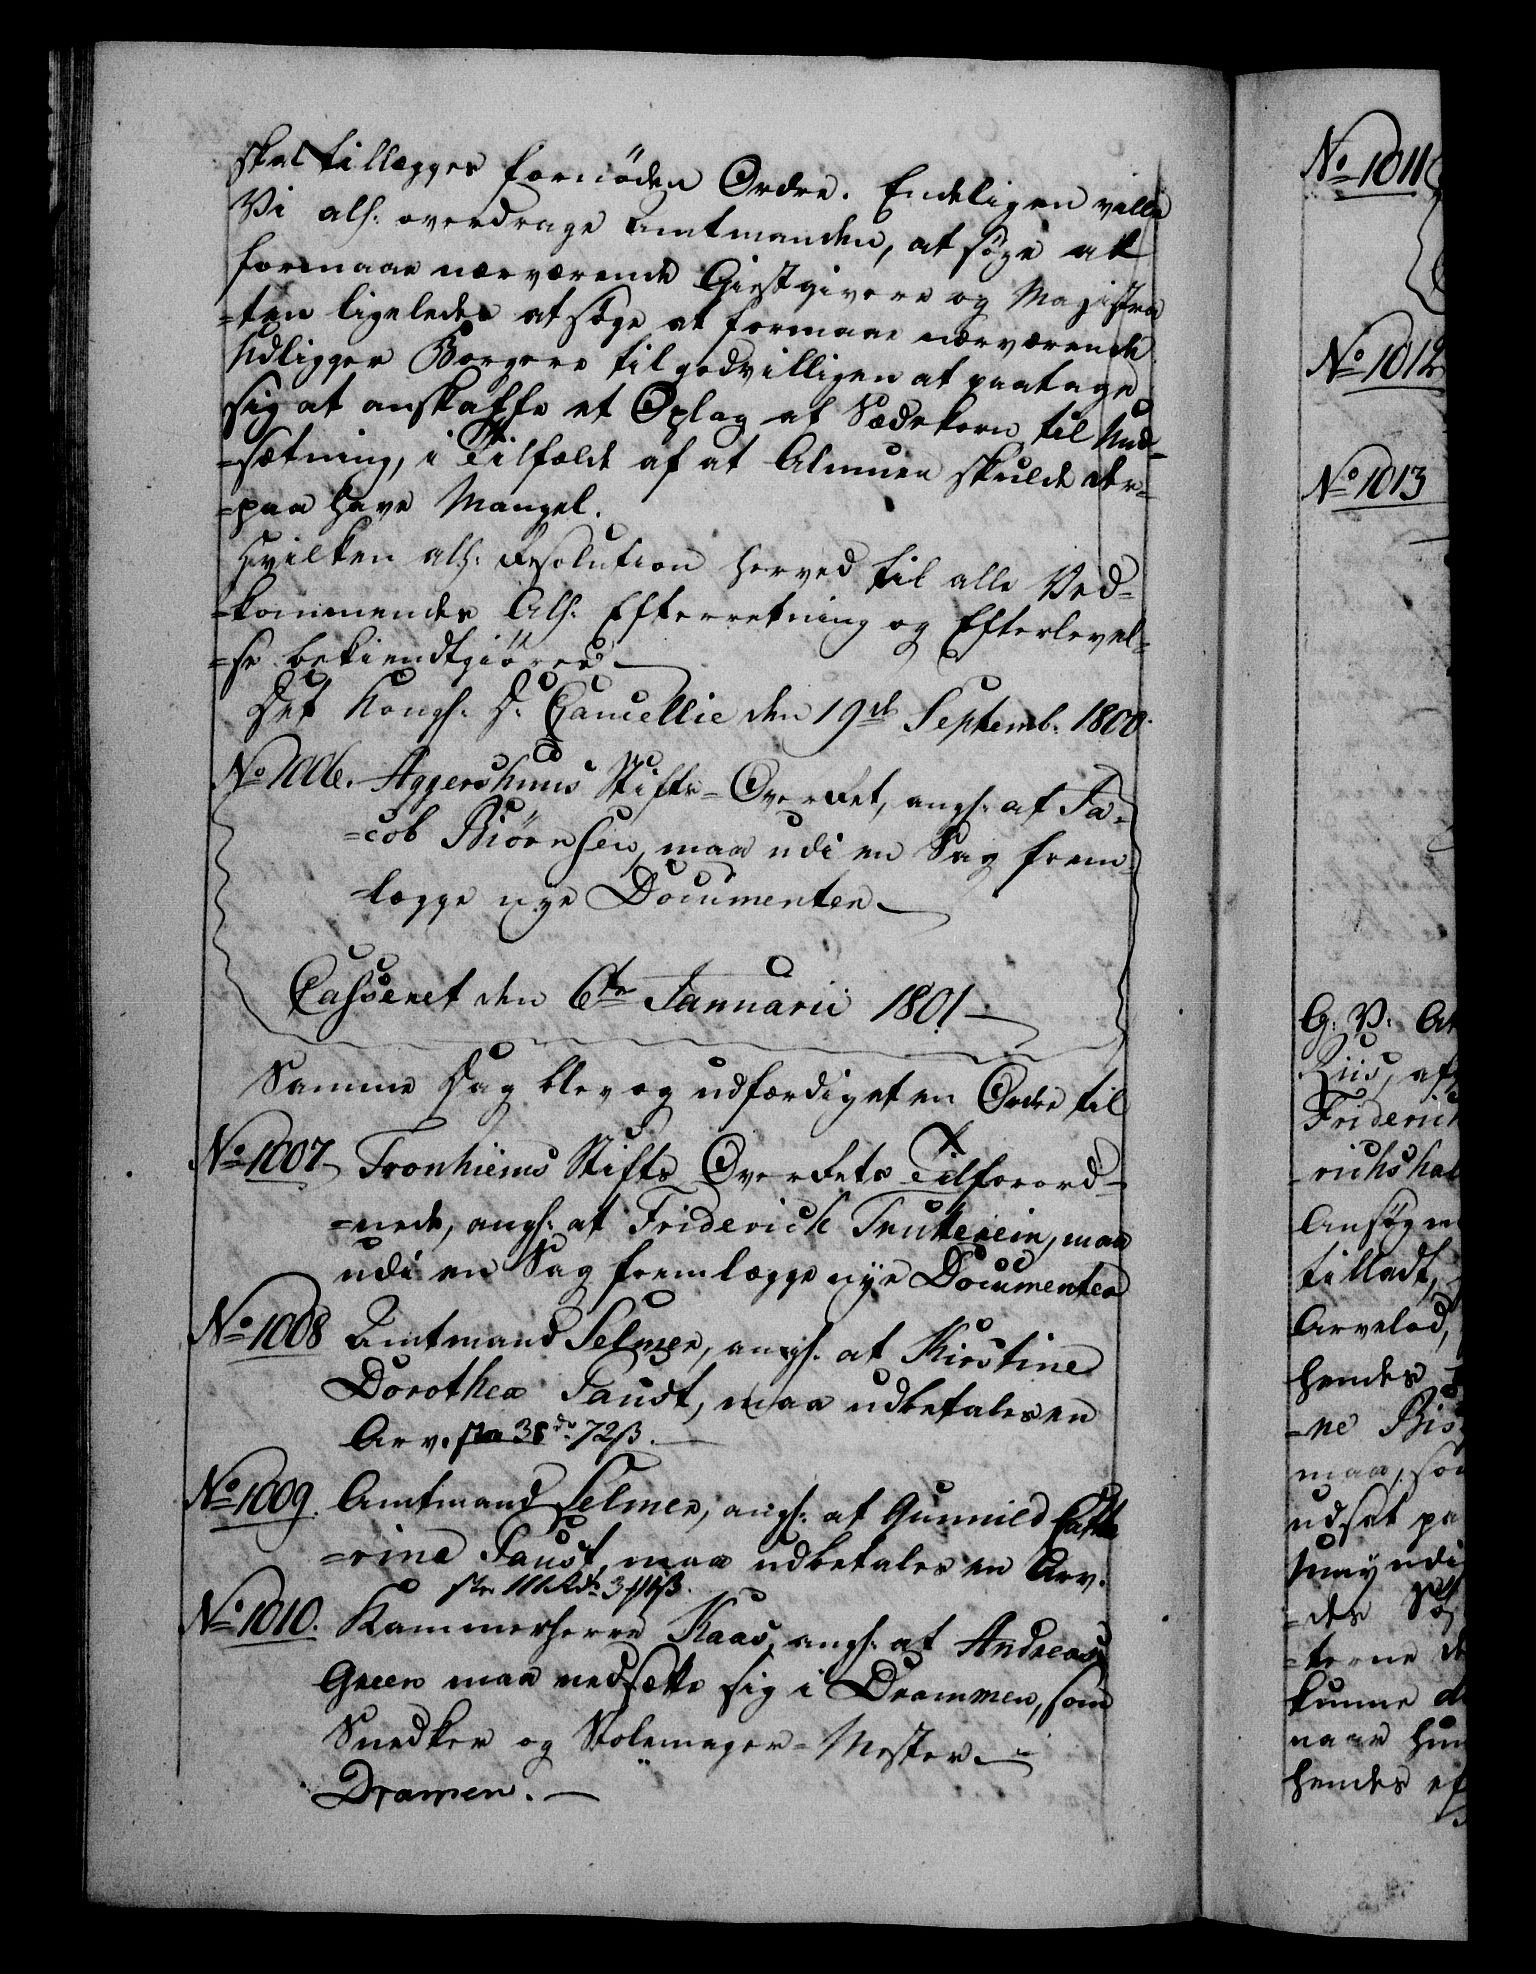 skal tillægges fornöden Ordre. Endeligen ville
Vi alh: overdrage Amtmanden, at søge at
formaae nærværende Giestgivere og Magistra
=ten ligeledes at søge at formaae nærværende
Udligger Borgere til godvilligen at paatage
sig at anskaffe et Oplag af Sædekorn til Und=
=sætning, i Tilfælde af at Almuen skulde der=
=paa have Mangel.
Hvilken alh: Resolution herved til alle Ved=
=kommendes Alh: Efterretning og Efterlevel=
=se bekiendtgiöres
Det Kongh: D: Cancellie den 19de Septemb: 1800.
No 1006. Aggershuus Stifts=OverRet, angh: at Ja=
=cob Biørnsen, maa udi en Sag frem=
=lægge nye Documenter
Casseret den 6te Januarii 1801
Samme Dag blev og udfærdiget en Ordre til
No 1007 Tronhiems Stifts OverRets Tilforord=
=nede, angh: at Friderich Trutere­in, maa
udi en Sag fremlægge nye Documenter
No 1008 Amtmand Selmer, angh: at Kirstine
Dorothea Faust, maa udbetales en
Arv. stor 38 dr 72ß.
No 1009. Amtmand Selmer, angh: at Gunnild Catha
=rina Faust, maa udbetales en Arv.
No 1010. Kammerherre Kaas, angh: at Andreas
Green maa nedsætte sig i Drammen, som
Snedker og Stolemager=Mester.
Dramen.
No 1011
No 1012
No 1013
G. V. At
Riis, af
Friderich
richshal
Ansøgn
tilladt,
Arvelod,
hendes
=ne Bi
maa, so
udsat pa
Umyndi
=des
=terne d
kunne d
naar hun
hendes ef